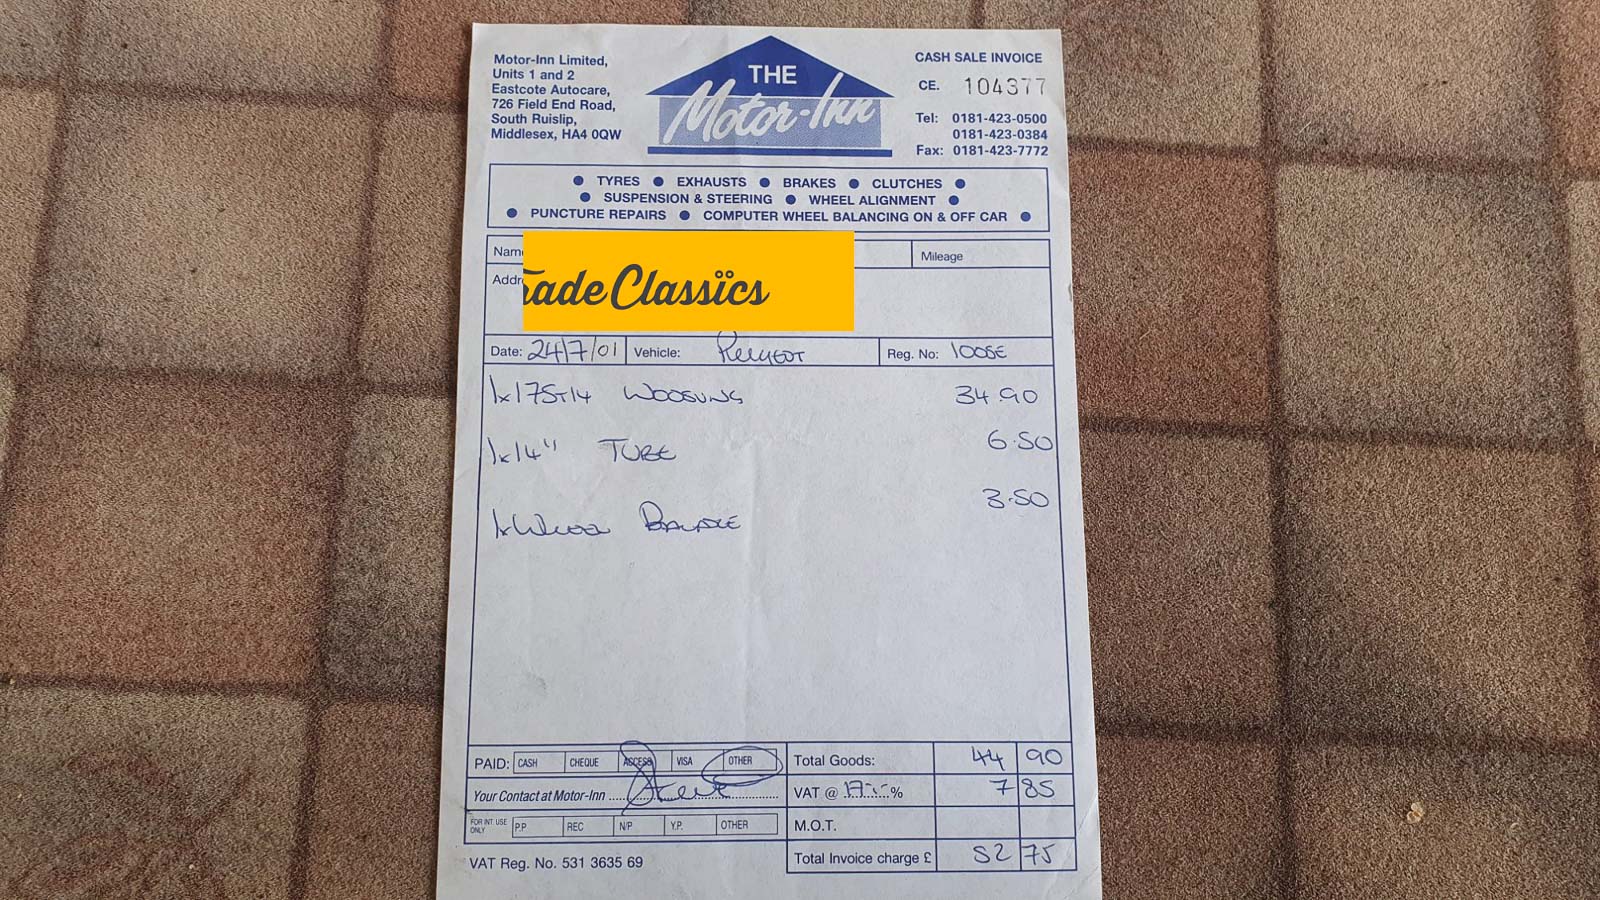 Motor-Inn Limited,
Units 1 and 2
Eastcote Autocare,
726 Field End Road,
South Ruislip,
Middlesex, HA4 0QW
THE
Motor-Inn
CASH SALE INVOICE
CE. 104377
Tel: 0181-423-0500
0181-423-0384
Fax: 0181-423-7772
● TYRES ● EXHAUSTS ● BRAKES ● CLUTCHES ●
● SUSPENSION & STEERING ● WHEEL ALIGNMENT ●
● PUNCTURE REPAIRS ● COMPUTER WHEEL BALANCING ON & OFF CAR ●
Nam Mileage
Addr
ade Classics
Date: 24/7/01 Vehicle: Peugeot Reg. No: LOOSE
1x175x14 WOOSUNG 34.90
1x14" TUBE 6.50
1xWheel BALANCE 3.50
PAID: CASH CHEQUE ACCESS VISA OTHER Total Goods: 44 90
Your Contact at Motor-Inn Steve VAT @ 17.5% 7 85
FOR INT. USE ONLY P.P REC N/P Y.P. OTHER M.O.T.
VAT Reg. No. 531 3635 69 Total Invoice charge £ 52 75